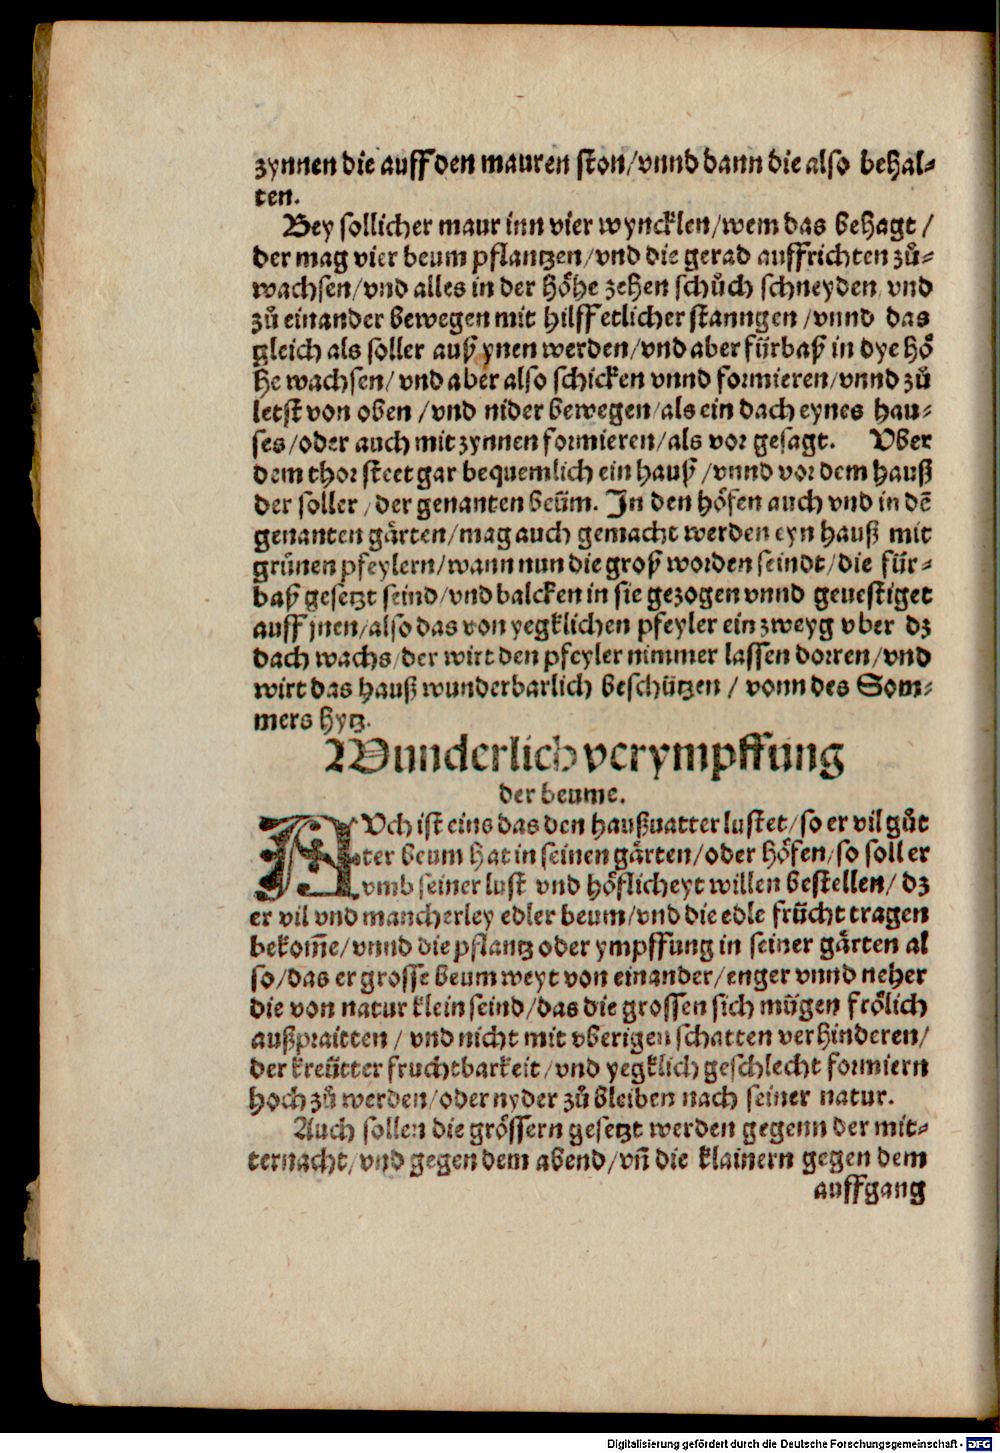 zynnen die auff den mauren ston/vnnd dann die also behal-
ten.
Bey sollicher maur inn vier wyncklen/wem das behagt/
der mag vier beum pflantzen/vnd die gerad auffrichten zů-
wachsen/vnd alles in der höhe zehen schůch schneyden vnd
zů einander bewegen mit hilff etlicher stanngen/vnnd das
gleich als soller auß ynen werden/vnd aber fürbaß in dye hö
he wachsen/vnd aber also schicken vnnd formieren/vnnd zů
letst von oben/vnd nider bewegen/als ein dach eynes hau-
ses/oder auch mit zynnen formieren/als vor gesagt. Vber
dem thor steet gar bequemlich ein hauß/vnnd vor dem hauß
der soller/der genanten beüm. In den höfen auch vnd in dē
genanten gärten/mag auch gemacht werden eyn hauß mit
grünen pfeylern/wann nun die groß worden seindt/die für-
baß gesetzt seind/vnd balcken in sie gezogen vnnd geuestiget
auff jnen/also das von yegklichen pfeyler ein zweyg vber dz
dach wachs/der wirt den pfeyler nimmer lassen dorren/vnd
wirt das hauß wunderbarlich beschützen/vonn des Som-
mers hytz.
Wunderlich verympffung
der beume.
AVch ist eins das den haußuatter lustet/so er vil gůt
ter beum hat in seinen gärten/oder höfen/so soll er
vmb seiner lust vnd höflicheyt willen bestellen/dz
er vil vnd mancherley edler beum/vnd die edle frücht tragen
bekom̄e/vnnd die pflantz oder ympffung in seiner gärten al
so/das er grosse beum weyt von einander/enger vnnd neher
die von natur klein seind/das die grossen sich mügen frölich
außpraitten/vnd nicht mit vberigen schatten verhinderen/
der kreütter fruchtbarkeit/vnd yegklich geschlecht formiern
hoch zů werden/oder nyder zů bleiben nach seiner natur.
Auch sollen die grössern gesetzt werden gegenn der mit-
ternacht/vnd gegen dem abend/vn̄ die klainern gegen dem
auffgang
Digitalisierung gefördert durch die Deutsche Forschungsgemeinschaft - DFG